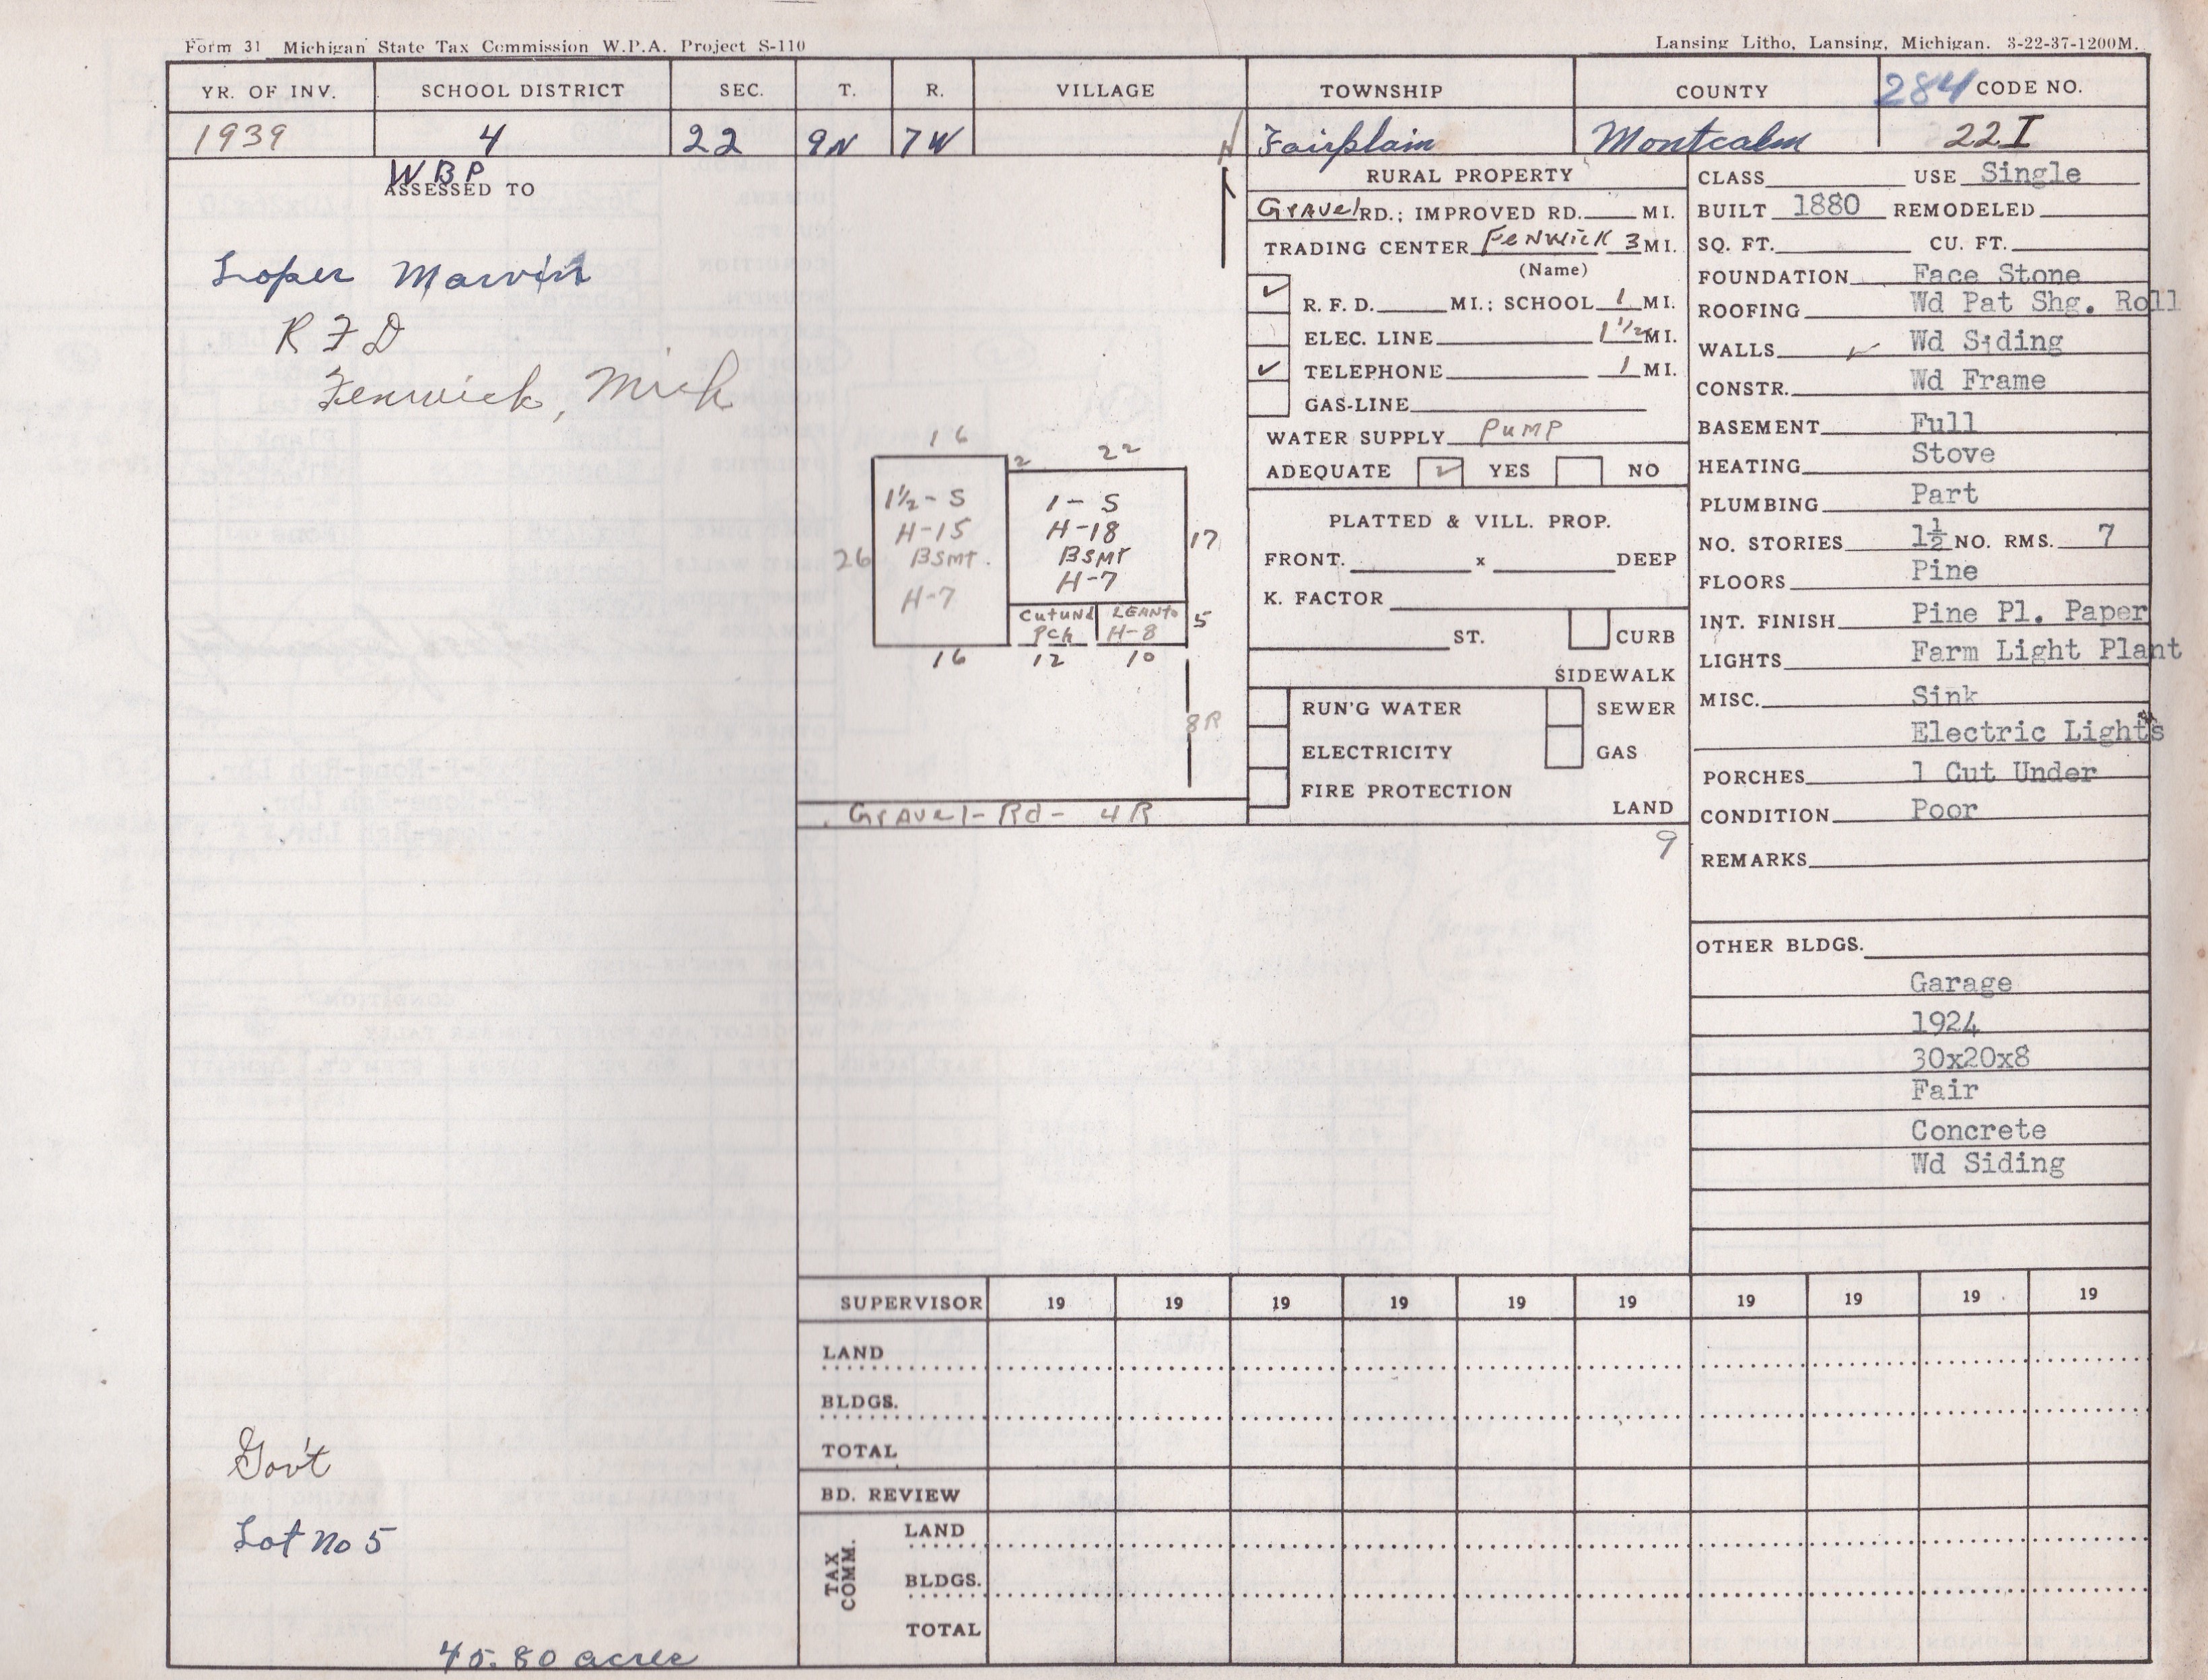 Form 31 Michigan State Tax Commission W.P.A. Project S-110
Lansing Litho, Lansing, Michigan. 3-22-37-1200M.
YR. OF INV. SCHOOL DISTRICT SEC. T. R. VILLAGE TOWNSHIP COUNTY 284 CODE NO.
1939 4 22 9N 7W Fairplain Montcalm 22I
WBP
ASSESSED TO
Loper Marvin
R F D
Fenwick, Mich
Gov't
Lot No 5
45.80 acres
N
16
2 22
1½-S 1-S
H-15 H-18
26 BSMT. BSMT 17
H-7 H-7
CutUnd LEANto
Pch H-8 5
16 12 10
8R
Gravel-Rd- 4R
RURAL PROPERTY
Gravel RD.; IMPROVED RD. MI.
TRADING CENTER Fenwick 3 MI.
(Name)
✓ R. F. D. MI.; SCHOOL 1 MI.
ELEC. LINE 1½ MI.
✓ TELEPHONE 1 MI.
GAS-LINE
WATER SUPPLY Pump
ADEQUATE ✓ YES NO
PLATTED & VILL. PROP.
FRONT. x DEEP
K. FACTOR
ST. CURB
SIDEWALK
RUN'G WATER SEWER
ELECTRICITY GAS
FIRE PROTECTION
LAND
9
CLASS USE Single
BUILT 1880 REMODELED
SQ. FT. CU. FT.
FOUNDATION Face Stone
ROOFING Wd Pat Shg. Roll
WALLS ✓ Wd Siding
CONSTR. Wd Frame
BASEMENT Full
HEATING Stove
PLUMBING Part
NO. STORIES 1½ NO. RMS. 7
FLOORS Pine
INT. FINISH Pine Pl. Paper
LIGHTS Farm Light Plant
MISC. Sink
Electric Lights
PORCHES 1 Cut Under
CONDITION Poor
REMARKS
OTHER BLDGS.
Garage
1924
30x20x8
Fair
Concrete
Wd Siding
SUPERVISOR 19 19 19 19 19 19 19 19 19 19
LAND
BLDGS.
TOTAL
BD. REVIEW
TAX COMM.
LAND
BLDGS.
TOTAL